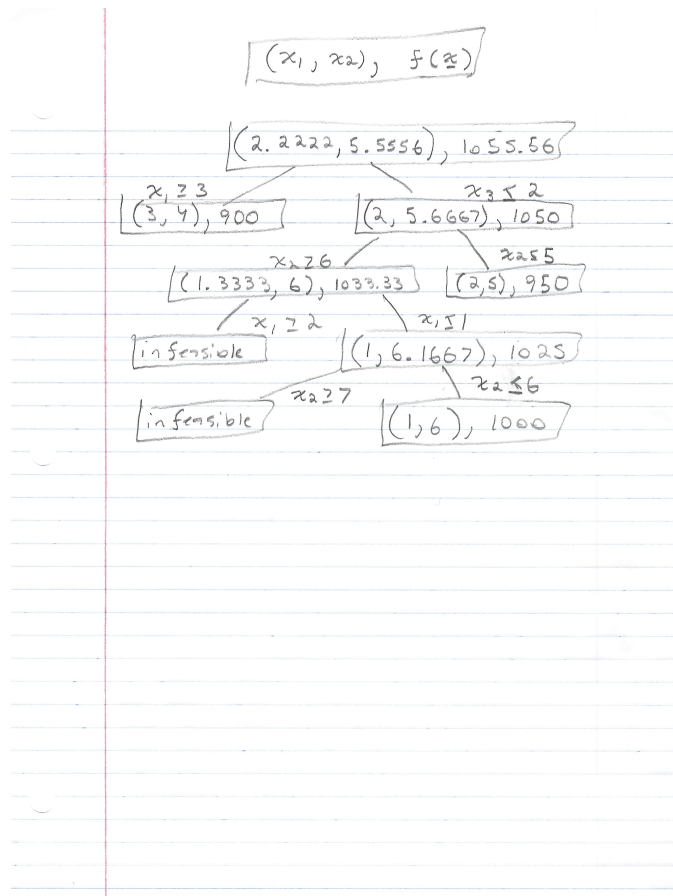 (x₁, x₂), f(x)
(2.2222, 5.5556), 1055.56
x₁ ≥ 3 x₃ ≤ 2
(3, 4), 900 (2, 5.6667), 1050
x₂ ≥ 6 x₂ ≤ 5
(1.3333, 6), 1033.33 (2,5), 950
x₁ ≥ 2 x₁ ≤ 1
infeasible (1, 6.1667), 1025
x₂ ≥ 7 x₂ ≤ 6
infeasible (1,6), 1000